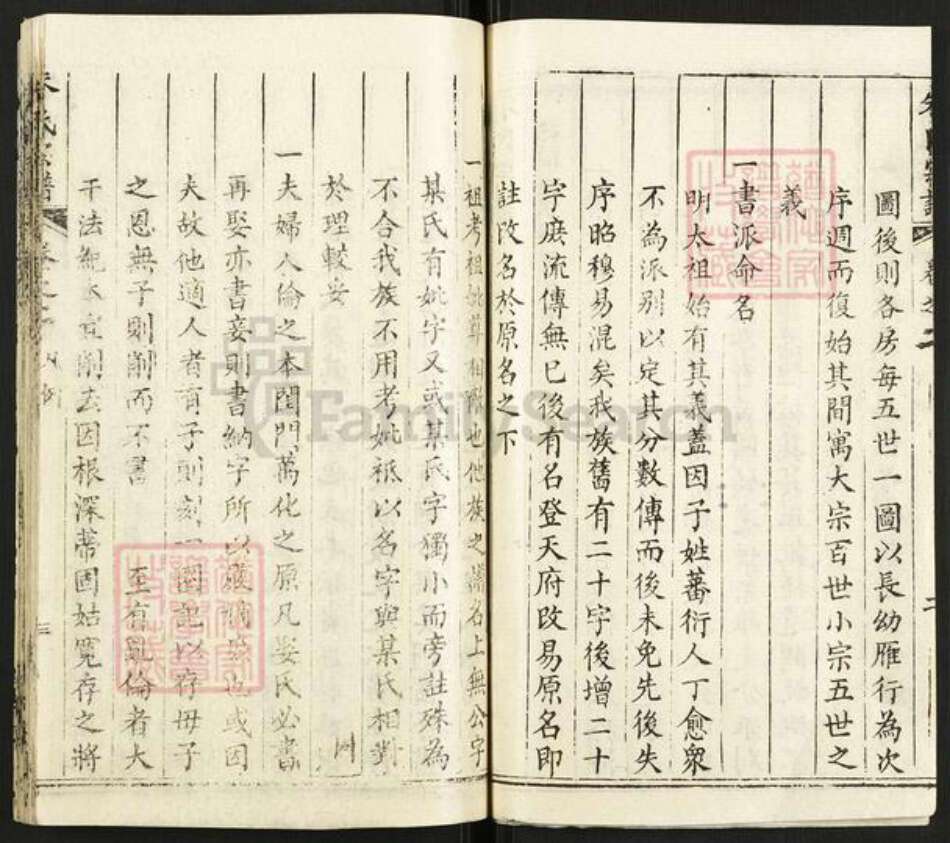 圖後則各房每五世一圖以長幼雁行為次
序週而復始其間寓大宗百世小宗五世之
義
一書派命名
明太祖始有其義蓋因子姓蕃衍人丁愈眾
不為派別以定其分數傳而後未免先後失
序昭穆易混矣我族舊有二十字後增二十
字庶流傳無已後有名登天府改易原名即
註改名於原名之下
一祖考祖妣尊相敵也他族之譜名上無公字
某氏有妣字又或某氏字獨小而旁註殊為
不合我族不用考妣祇以名字與某氏相對
於理較妥
一夫婦人倫之本閨門萬化之原凡娶氏必書
再娶亦書妾則書納字所以嚴嫡庶也或因
夫故他適人者有子則刻一圖記以存母子
之恩無子則削而不書 至有亂倫者大
干法紀本宜削去因根深蒂固姑寬存之將
朱氏宗譜
卷之
FamilySearch